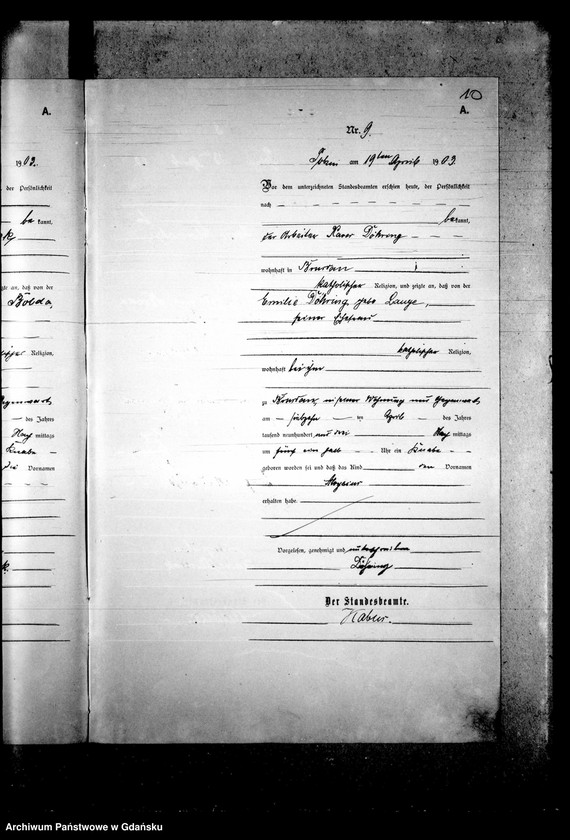 A.
1903.
der Persönlichkeit
be kannt,
zeigte an, daß von der
Religion,
des Jahres
Nach mittags
Knabe
Vornamen
10
A.
Nr. 9.
am 19ten April 1903.
Vor dem unterzeichneten Standesbeamten erschien heute, der Persönlichkeit
nach
bekannt,
der Arbeiter Xaver Döhring
wohnhaft in
katholischer Religion, und zeigte an, daß von der
Emilie Döhring geb. Lange,
seiner Ehefrau
katholischer Religion,
wohnhaft bei ihm
zu in seiner Wohnung
am ten April des Jahres
tausend neunhundert und drei Nach mittags
um fünf ein halb Uhr ein Knabe
geboren worden sei und daß das Kind den Vornamen
Aloysius
erhalten habe.
Vorgelesen, genehmigt und unterschrieben
Döhring
Der Standesbeamte.
Archiwum Państwowe w Gdańsku